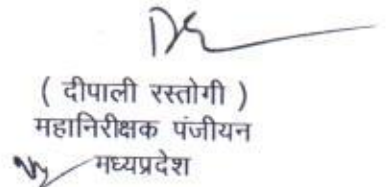 ( दीपाली रस्तोगी )
महानिरीक्षक पंजीयन
मध्यप्रदेश